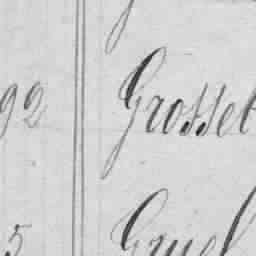 92 Grosset
5 Gruel